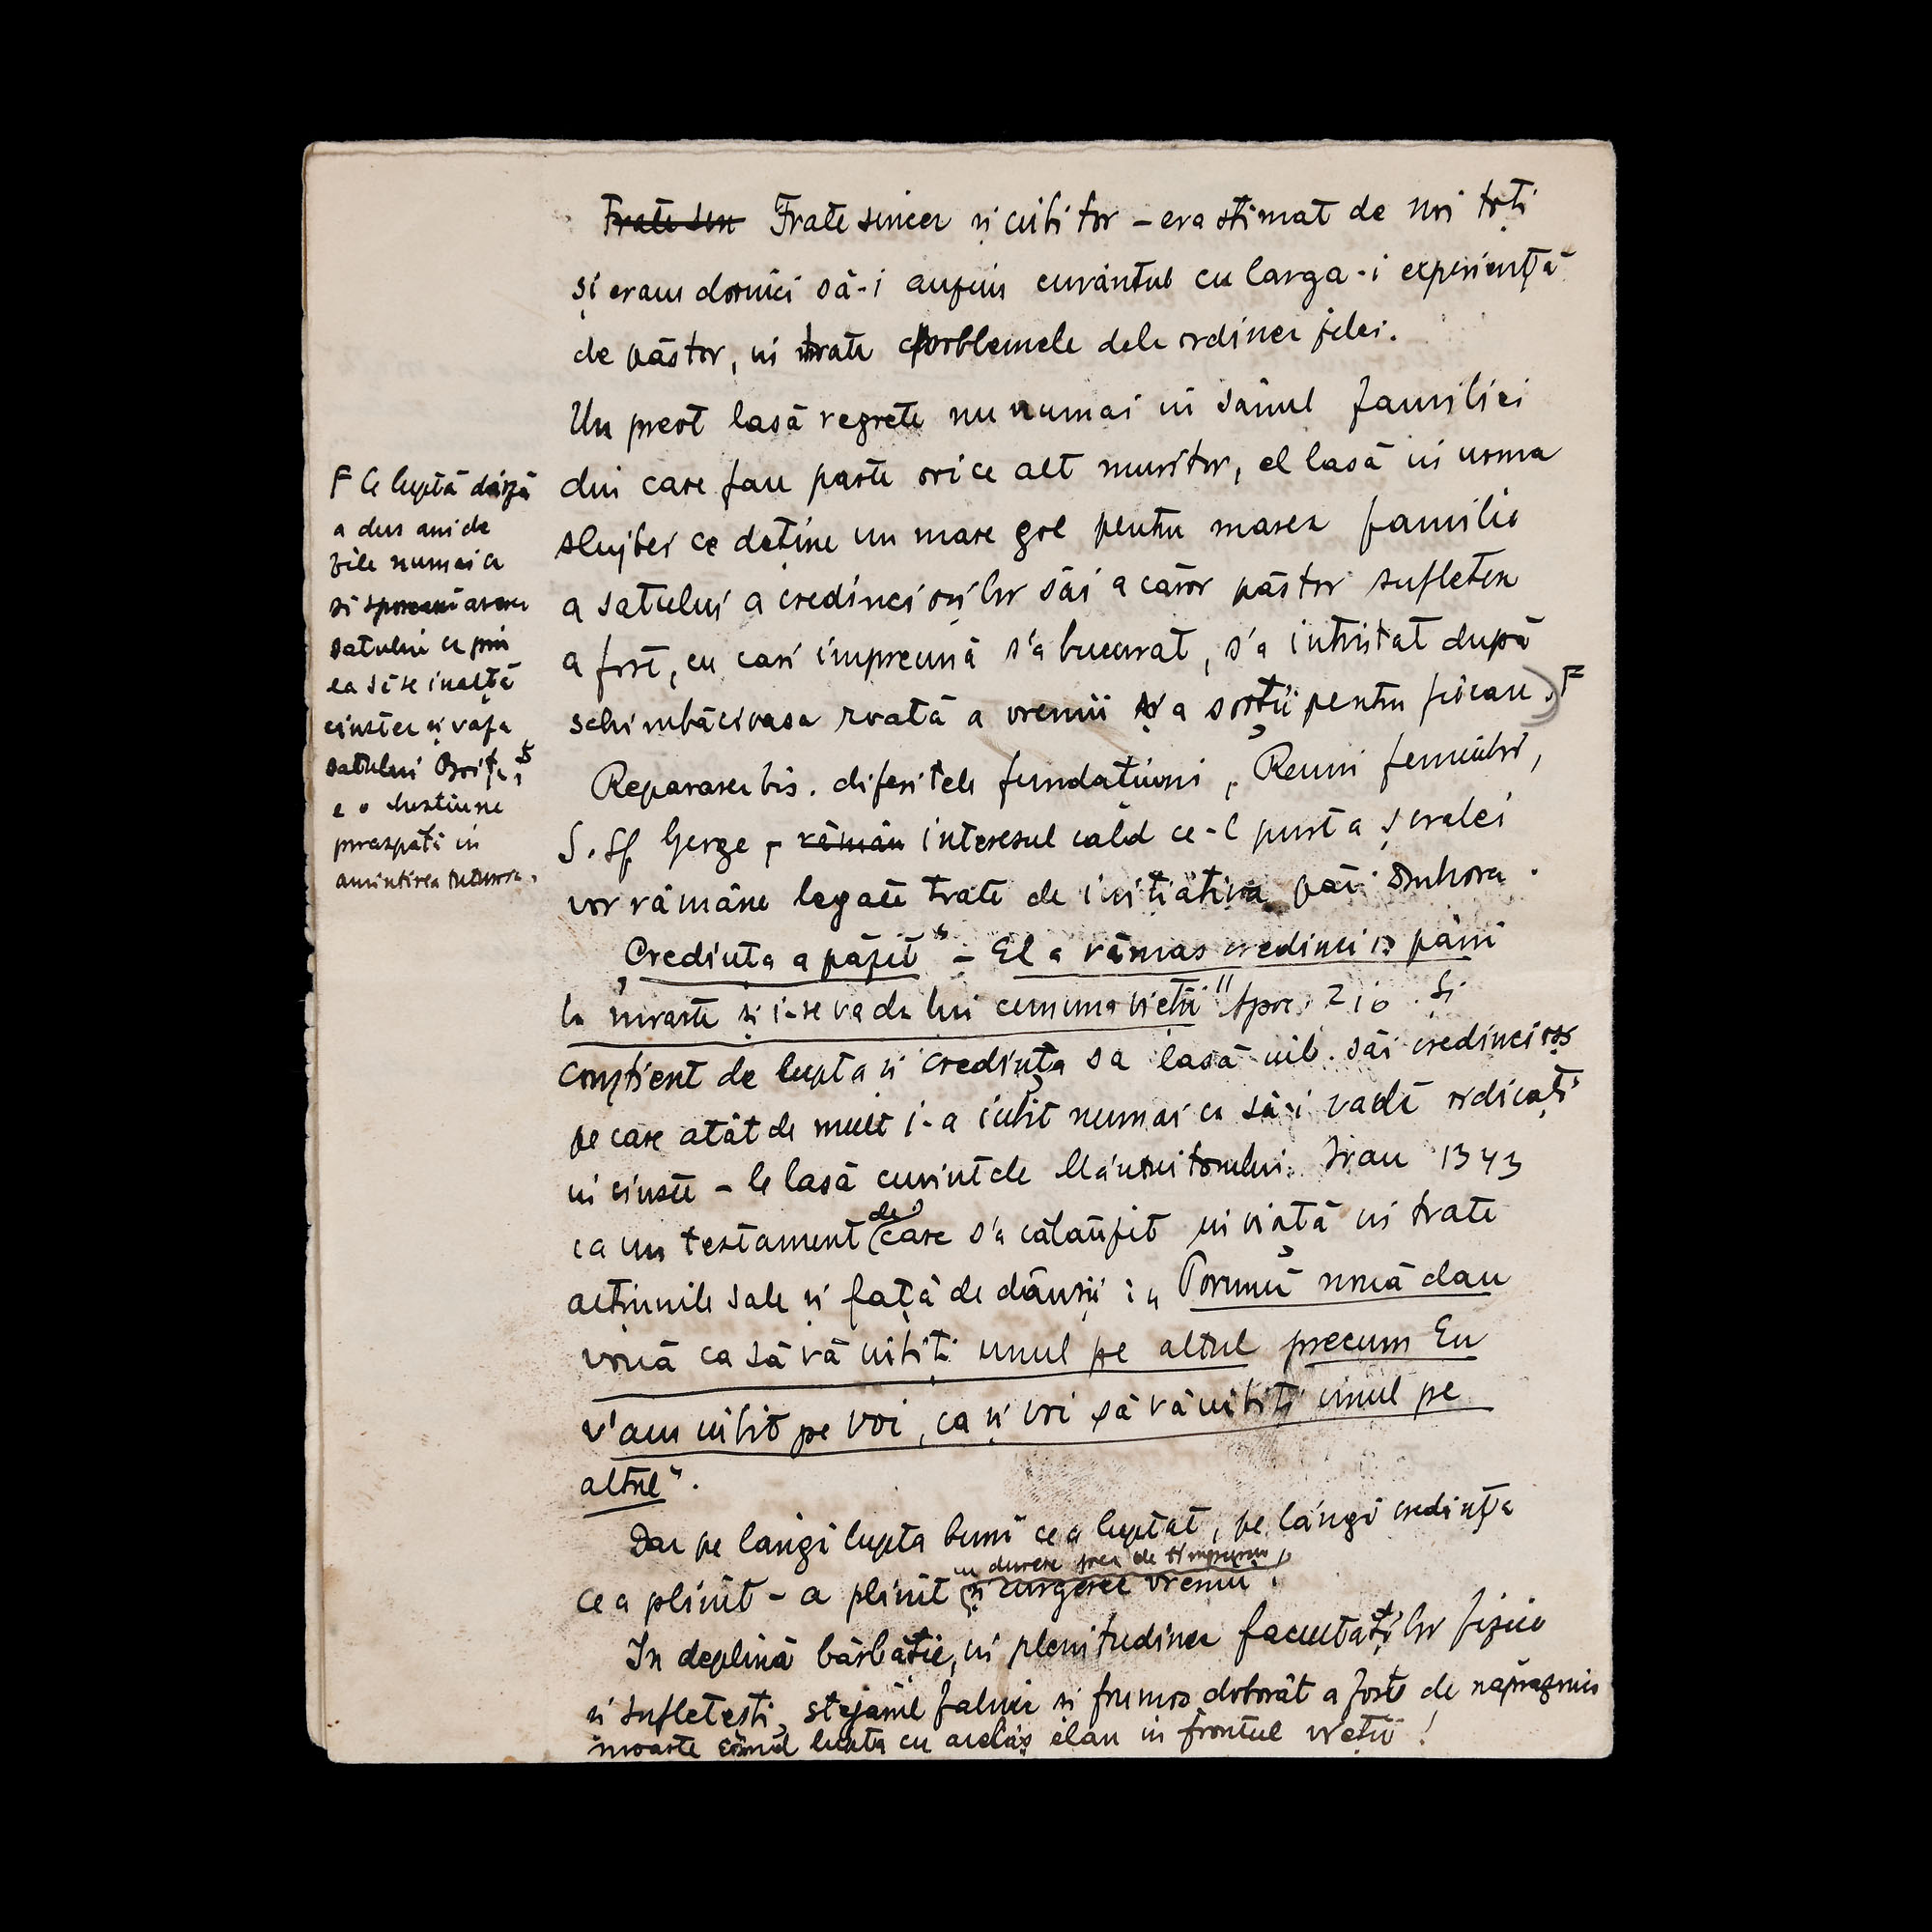 Frate sin Frate sincer și iubitor – era stimat de noi toți
și eram dornici să-i auzim cuvântul cu larga-i experiență
de păstor, in toate problemele dela ordinea zilei.
Un preot lasă regrete nu numai in sânul familiei
din care fau parte orice alt muritor, el lasă in urma
slujbei ce deține un mare gol pentru marea familie
a satului a credincioșilor săi a căror păstor sufletesc
a fost, cu cari impreună s'a bucurat, s'a intristat după
schimbăcioasa roată a vremii și a sorții pentru fiecare. F
F Ce luptă dârză
a dus ani de
zile numai ca
să sporească averea
satului ca prin
ea să se inalță
cinstea și vaza
satului
e o chestiune
proaspătă in
amintirea tuturora.
Repararea bis. diferitele fundațiuni, Reuni femeilor,
S. Sf George, rămân interesul cald ce-l purta școalei
vor rămâne legate toate de inițiativa păr.
„Credința a păzit" – El a rămas credincios pănă
la moarte și i-se va da lui cununa vieții" Apoc. 2 10. Și
conștient de lupta și credința sa lasă iub. săi credincioși
pe care atât de mult i-a iubit numai ca să-i vadă ridicați
in cinste – le lasă cuvintele Mântuitorului. Ioan 13 43
ca un testament de care s'a călăuzit in viață in toate
acțiunile sale și față de dânșii: „Poruncă nouă dau
vouă ca să vă iubiți unul pe altul precum Eu
v'am iubit pe voi, ca și voi să vă iubiți unul pe
altul".
Dar pe lângă lupta bună ce a luptat, pe lângă credința
cu durere prea de timpuriu
ce a plinit – a plinit și curgerea vremii.
In deplină bărbăție, in plenitudinea facultăților fizice
și sufletești, stejarul falnic și frumos doborât a fost de năprasnica
moarte când lupta cu acelaș elan in frontul vieții!